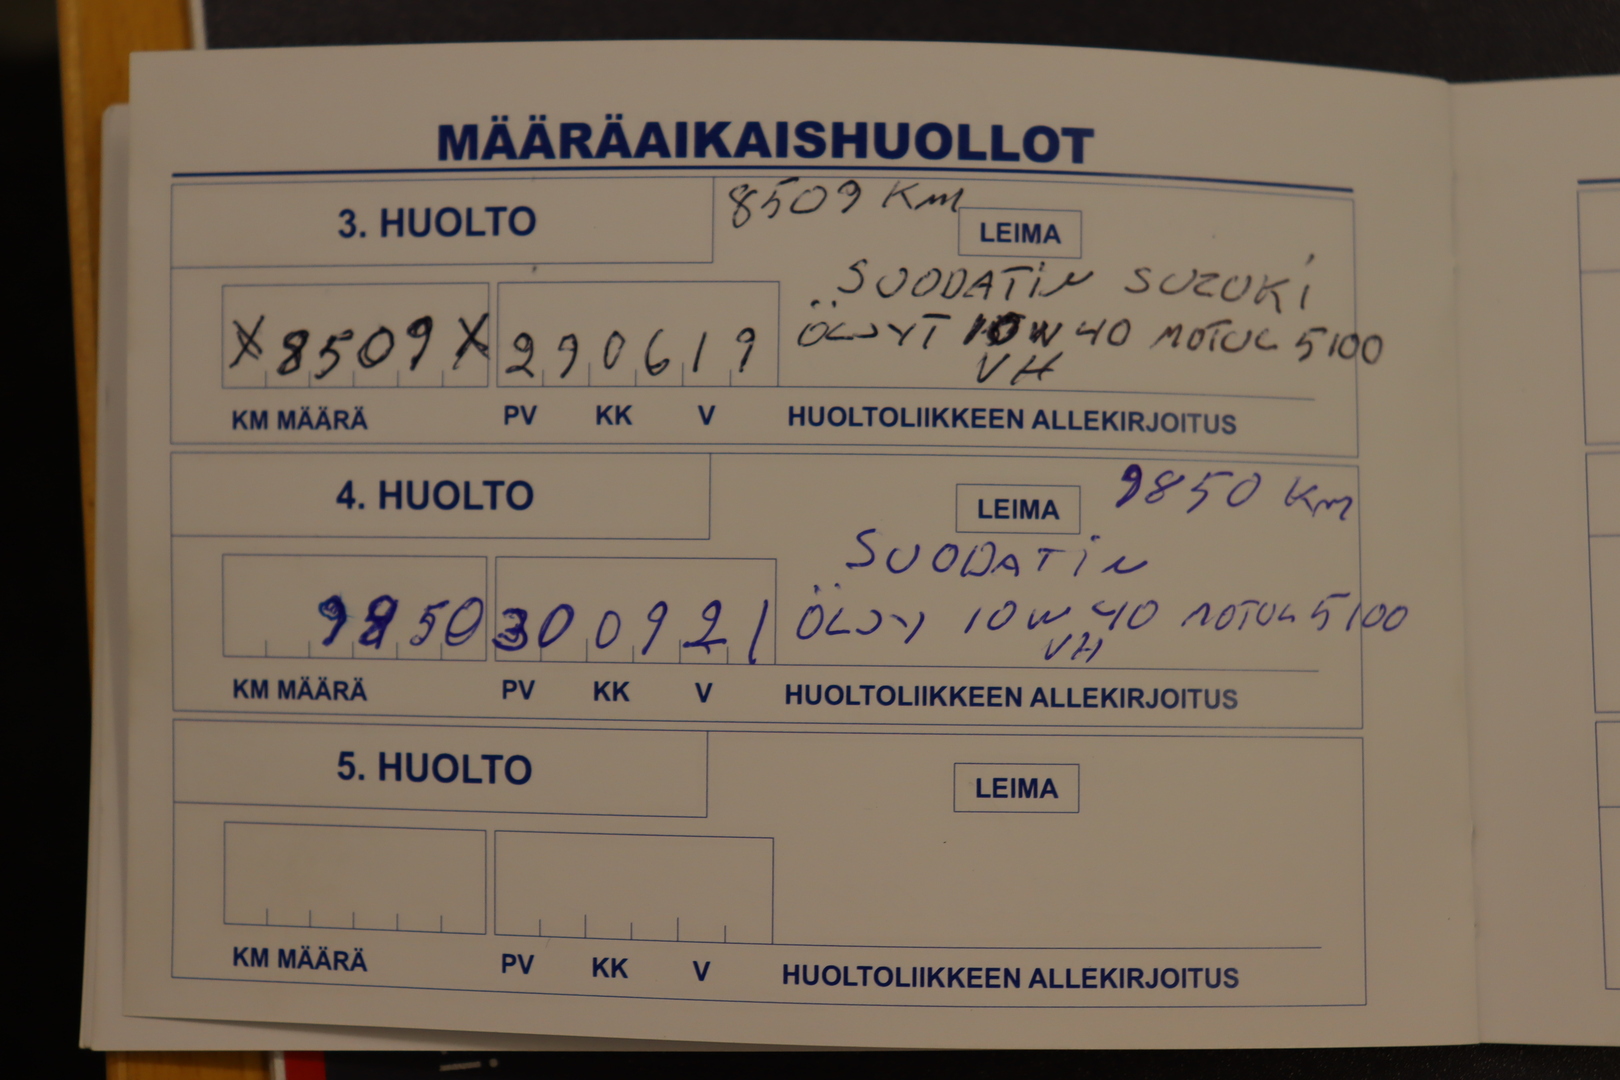 MÄÄRÄAIKAISHUOLLOT
3. HUOLTO
8509 Km
LEIMA
SUODATIN SUZUKI
ÖLJYT 10W40 MOTUL 5100
VH
X8509X 290619
KM MÄÄRÄ PV KK V HUOLTOLIIKKEEN ALLEKIRJOITUS
4. HUOLTO
LEIMA
9850 Km
SUODATIN
ÖLJY 10W40 MOTUL 5100
VH
9850 300921
KM MÄÄRÄ PV KK V HUOLTOLIIKKEEN ALLEKIRJOITUS
5. HUOLTO
LEIMA
KM MÄÄRÄ PV KK V HUOLTOLIIKKEEN ALLEKIRJOITUS